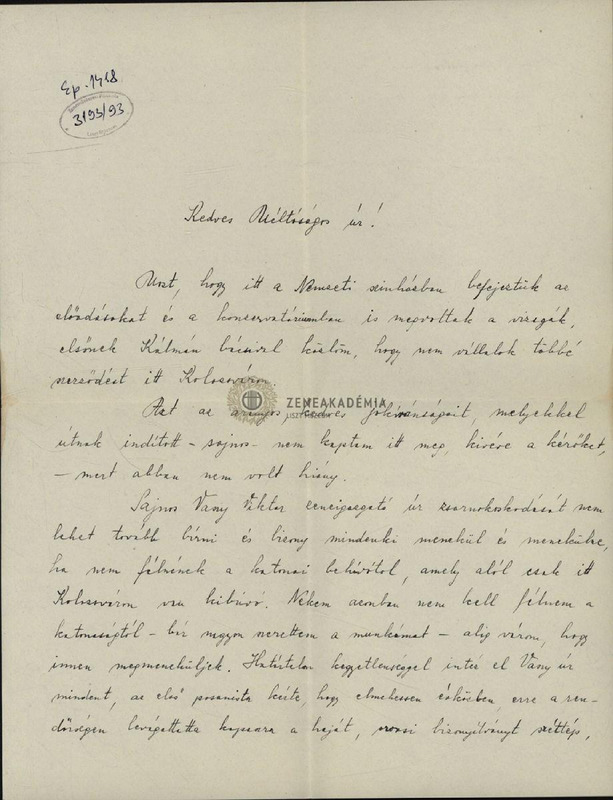 Ep. 1418
3193/93
Kedves Méltóságos úr!
Most, hogy itt a Nemzeti szinházban befejeztük az
előadásokat és a konservatóriumban is megvoltak a vizsgák,
elsőnek Kálmán bácsival közlöm, hogy nem vállalok többé
szerződést itt Kolozsváron.
ZENEAKADÉMIA
LISZT MÚZEUM
Azt az aranyos, kedves jókívánságait, melyekkel
útnak indított – sajnos – nem kaptam itt meg, kivéve a kérőket,
– mert abban nem volt hiány.
Sajnos Vaszy Viktor zeneigazgató úr zsarnokoskodását nem
lehet tovább bírni és bizony mindenki menekül és menekülne,
ha nem félnének a katonai behívótól, amely alól csak itt
Kolozsváron van kibúvó. Nekem azonban nem kell félnem a
katonaságtól – bár nagyon szerettem a munkámat – alig várom, hogy
innen megmeneküljek. Határtalan kegyetlenséggel intéz el Vaszy úr
mindent, az első posanista kérte, hogy elmehessen esküdni, erre a ren-
dőrségen levágattatta kopaszra a haját, orvosi bizonyítványt széttép,